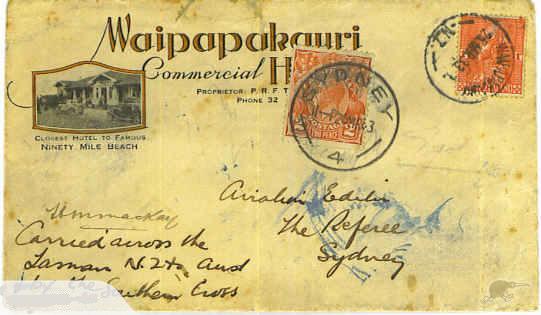 Waipapakauri
Commercial H
PROPRIETOR: P. R. F. T
PHONE 32
CLOSEST HOTEL TO FAMOUS
NINETY MILE BEACH
SYDNEY
4
POSTAGE
2
N.Z.
Aviation Editor
The Referee
Sydney
Carried across the
Tasman N.Z to Aust
by the Southern Cross